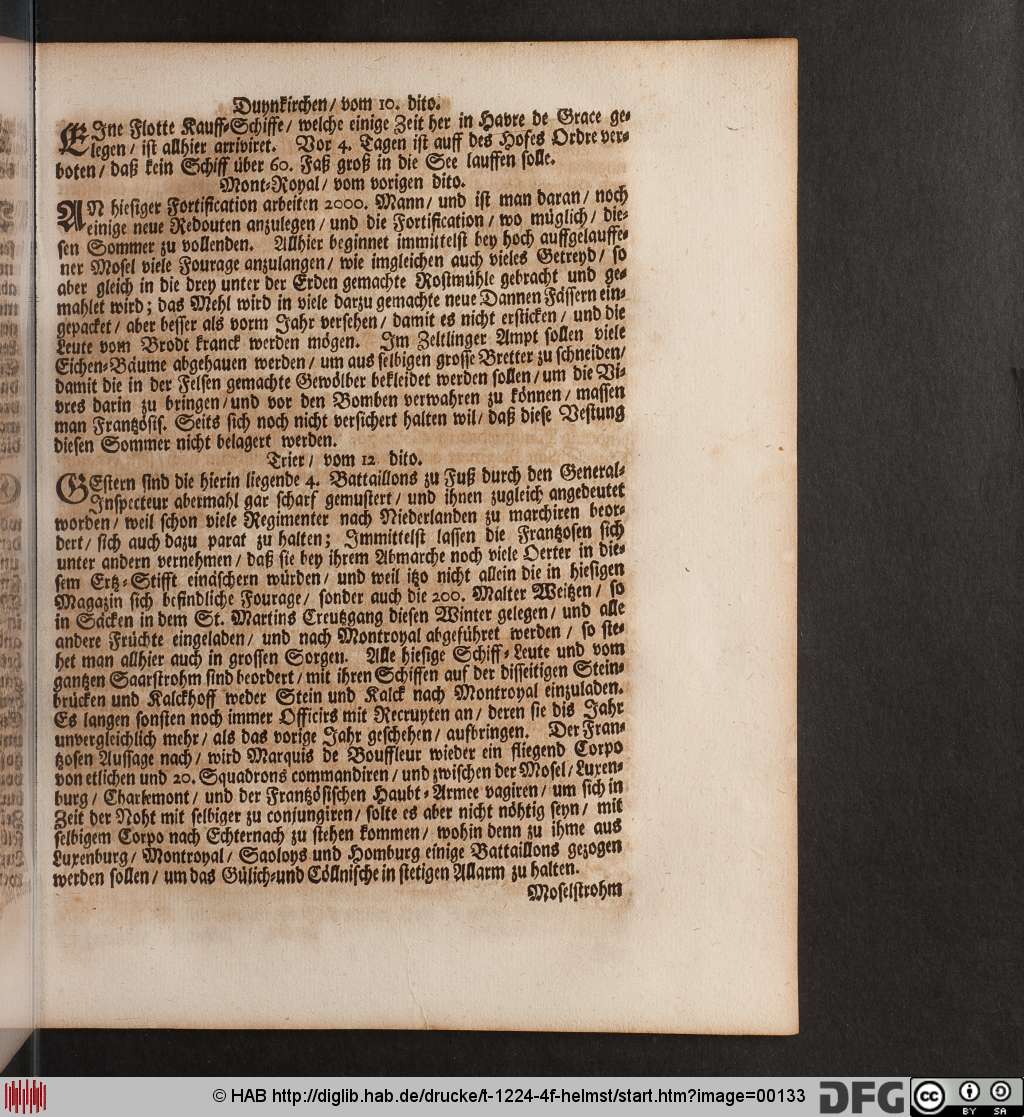 Duynkirchen/ vom 10. dito.
EIne Flotte Kauff-Schiffe/ welche einige Zeit her in Havre de Grace ge-
legen/ ist allhier arriviret. Vor 4. Tagen ist auff des Hofes Ordre ver-
boten/ daß kein Schiff über 60. Faß groß in die See lauffen solle.
Mont-Royal/ vom vorigen dito.
AN hiesiger Fortification arbeiten 2000. Mann/ und ist man daran/ noch
einige neue Redouten anzulegen/ und die Fortification/ wo müglich/ die-
sen Sommer zu vollenden. Allhier beginnet immittelst bey hoch auffgelauffe-
ner Mosel viele Fourage anzulangen/ wie imgleichen auch vieles Getreyd/ so
aber gleich in die drey unter der Erden gemachte Rostmühle gebracht und ge-
mahlet wird; das Mehl wird in viele darzu gemachte neue Dannen Fässern ein-
gepacket/ aber besser als vorm Jahr versehen/ damit es nicht ersticken/ und die
Leute vom Brodt kranck werden mögen. Im Zeltlinger Ampt sollen viele
Eichen-Bäume abgehauen werden/ um aus selbigen grosse Bretter zu schneiden/
damit die in der Felsen gemachte Gewölber bekleidet werden sollen/ um die Vi-
vres darin zu bringen/ und vor den Bomben verwahren zu können/ massen
man Frantzösis. Seits sich noch nicht versichert halten wil/ daß diese Vestung
diesen Sommer nicht belagert werden.
Trier/ vom 12 dito.
GEstern sind die hierin liegende 4. Battaillons zu Fuß durch den General-
Inspecteur abermahl gar scharf gemustert/ und ihnen zugleich angedeutet
worden/ weil schon viele Regimenter nach Niederlanden zu marchiren beor-
dert/ sich auch dazu parat zu halten; Immittelst lassen die Frantzosen sich
unter andern vernehmen/ daß sie bey ihrem Abmarche noch viele Oerter in die-
sem Ertz-Stifft einäschern würden/ und weil itzo nicht allein die in hiesigen
Magazin sich befindliche Fourage/ sonder auch die 200. Malter Weitzen/ so
in Säcken in dem St. Martins Creutzgang diesen Winter gelegen/ und alle
andere Früchte eingeladen/ und nach Montroyal abgeführet werden/ so ste-
het man allhier auch in grossen Sorgen. Alle hiesige Schiff-Leute und vom
gantzen Saarstrohm sind beordert/ mit ihren Schiffen auf der disseitigen Stein-
brücken und Kalckhoff weder Stein und Kalck nach Montroyal einzuladen.
Es langen sonsten noch immer Officirs mit Recruyten an/ deren sie dis Jahr
unvergleichlich mehr/ als das vorige Jahr geschehen/ aufbringen. Der Fran-
tzosen Aussage nach/ wird Marquis de Bouffleur wieder ein fliegend Corpo
von etlichen und 20. Squadrons commandiren/ und zwischen der Mosel/ Luxen-
burg/ Charlemont/ und der Frantzösischen Haubt-Armee vagiren/ um sich in
Zeit der Noht mit selbiger zu conjungiren/ solte es aber nicht nöhtig seyn/ mit
selbigem Corpo nach Echternach zu stehen kommen/ wohin denn zu ihme aus
Luxenburg/ Montroyal/ Saoloys und Homburg einige Battaillons gezogen
werden sollen/ um das Gülich-und Cöllnische in stetigen Allarm zu halten.
Moselstrohm
© HAB http://diglib.hab.de/drucke/t-1224-4f-helmst/start.htm?image=00133
DFG
cc
BY SA